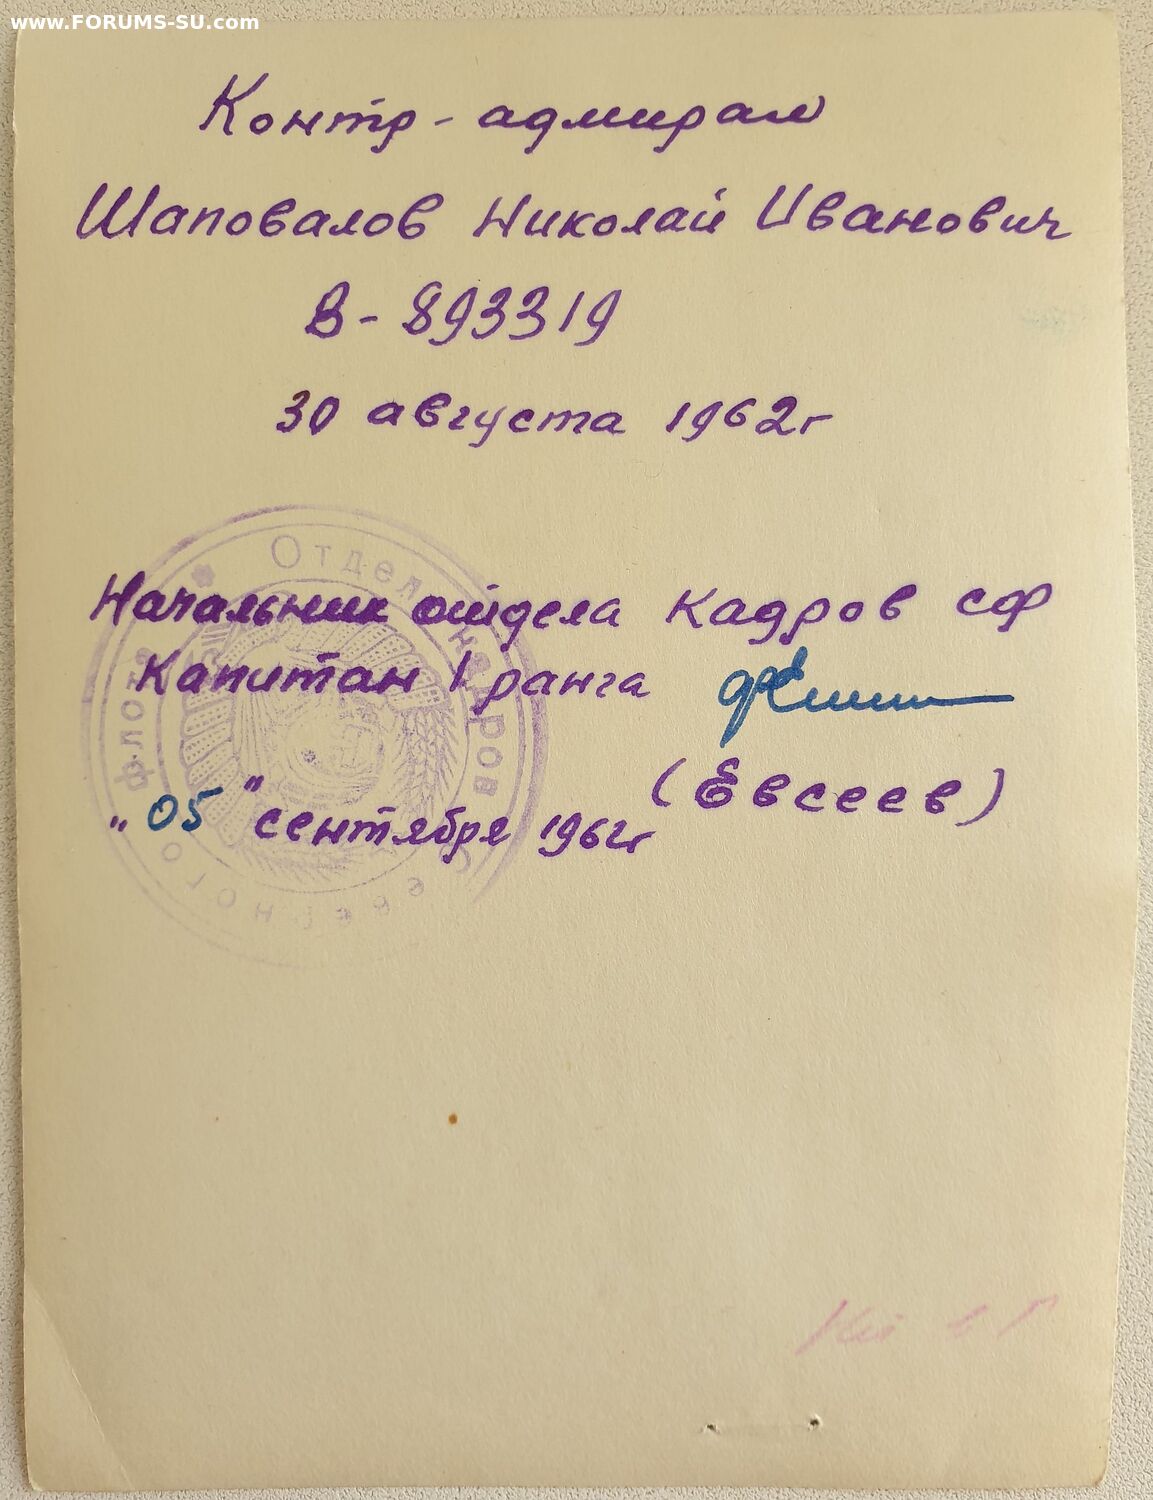 www.FORUMS-SU.com
Контр-адмирал
Шаповалов Николай Иванович
В-893319
30 августа 1962г
Отдел кадров Северного флота
Начальник отдела кадров СФ
Капитан 1 ранга
(Евсеев)
„05" сентября 1962г